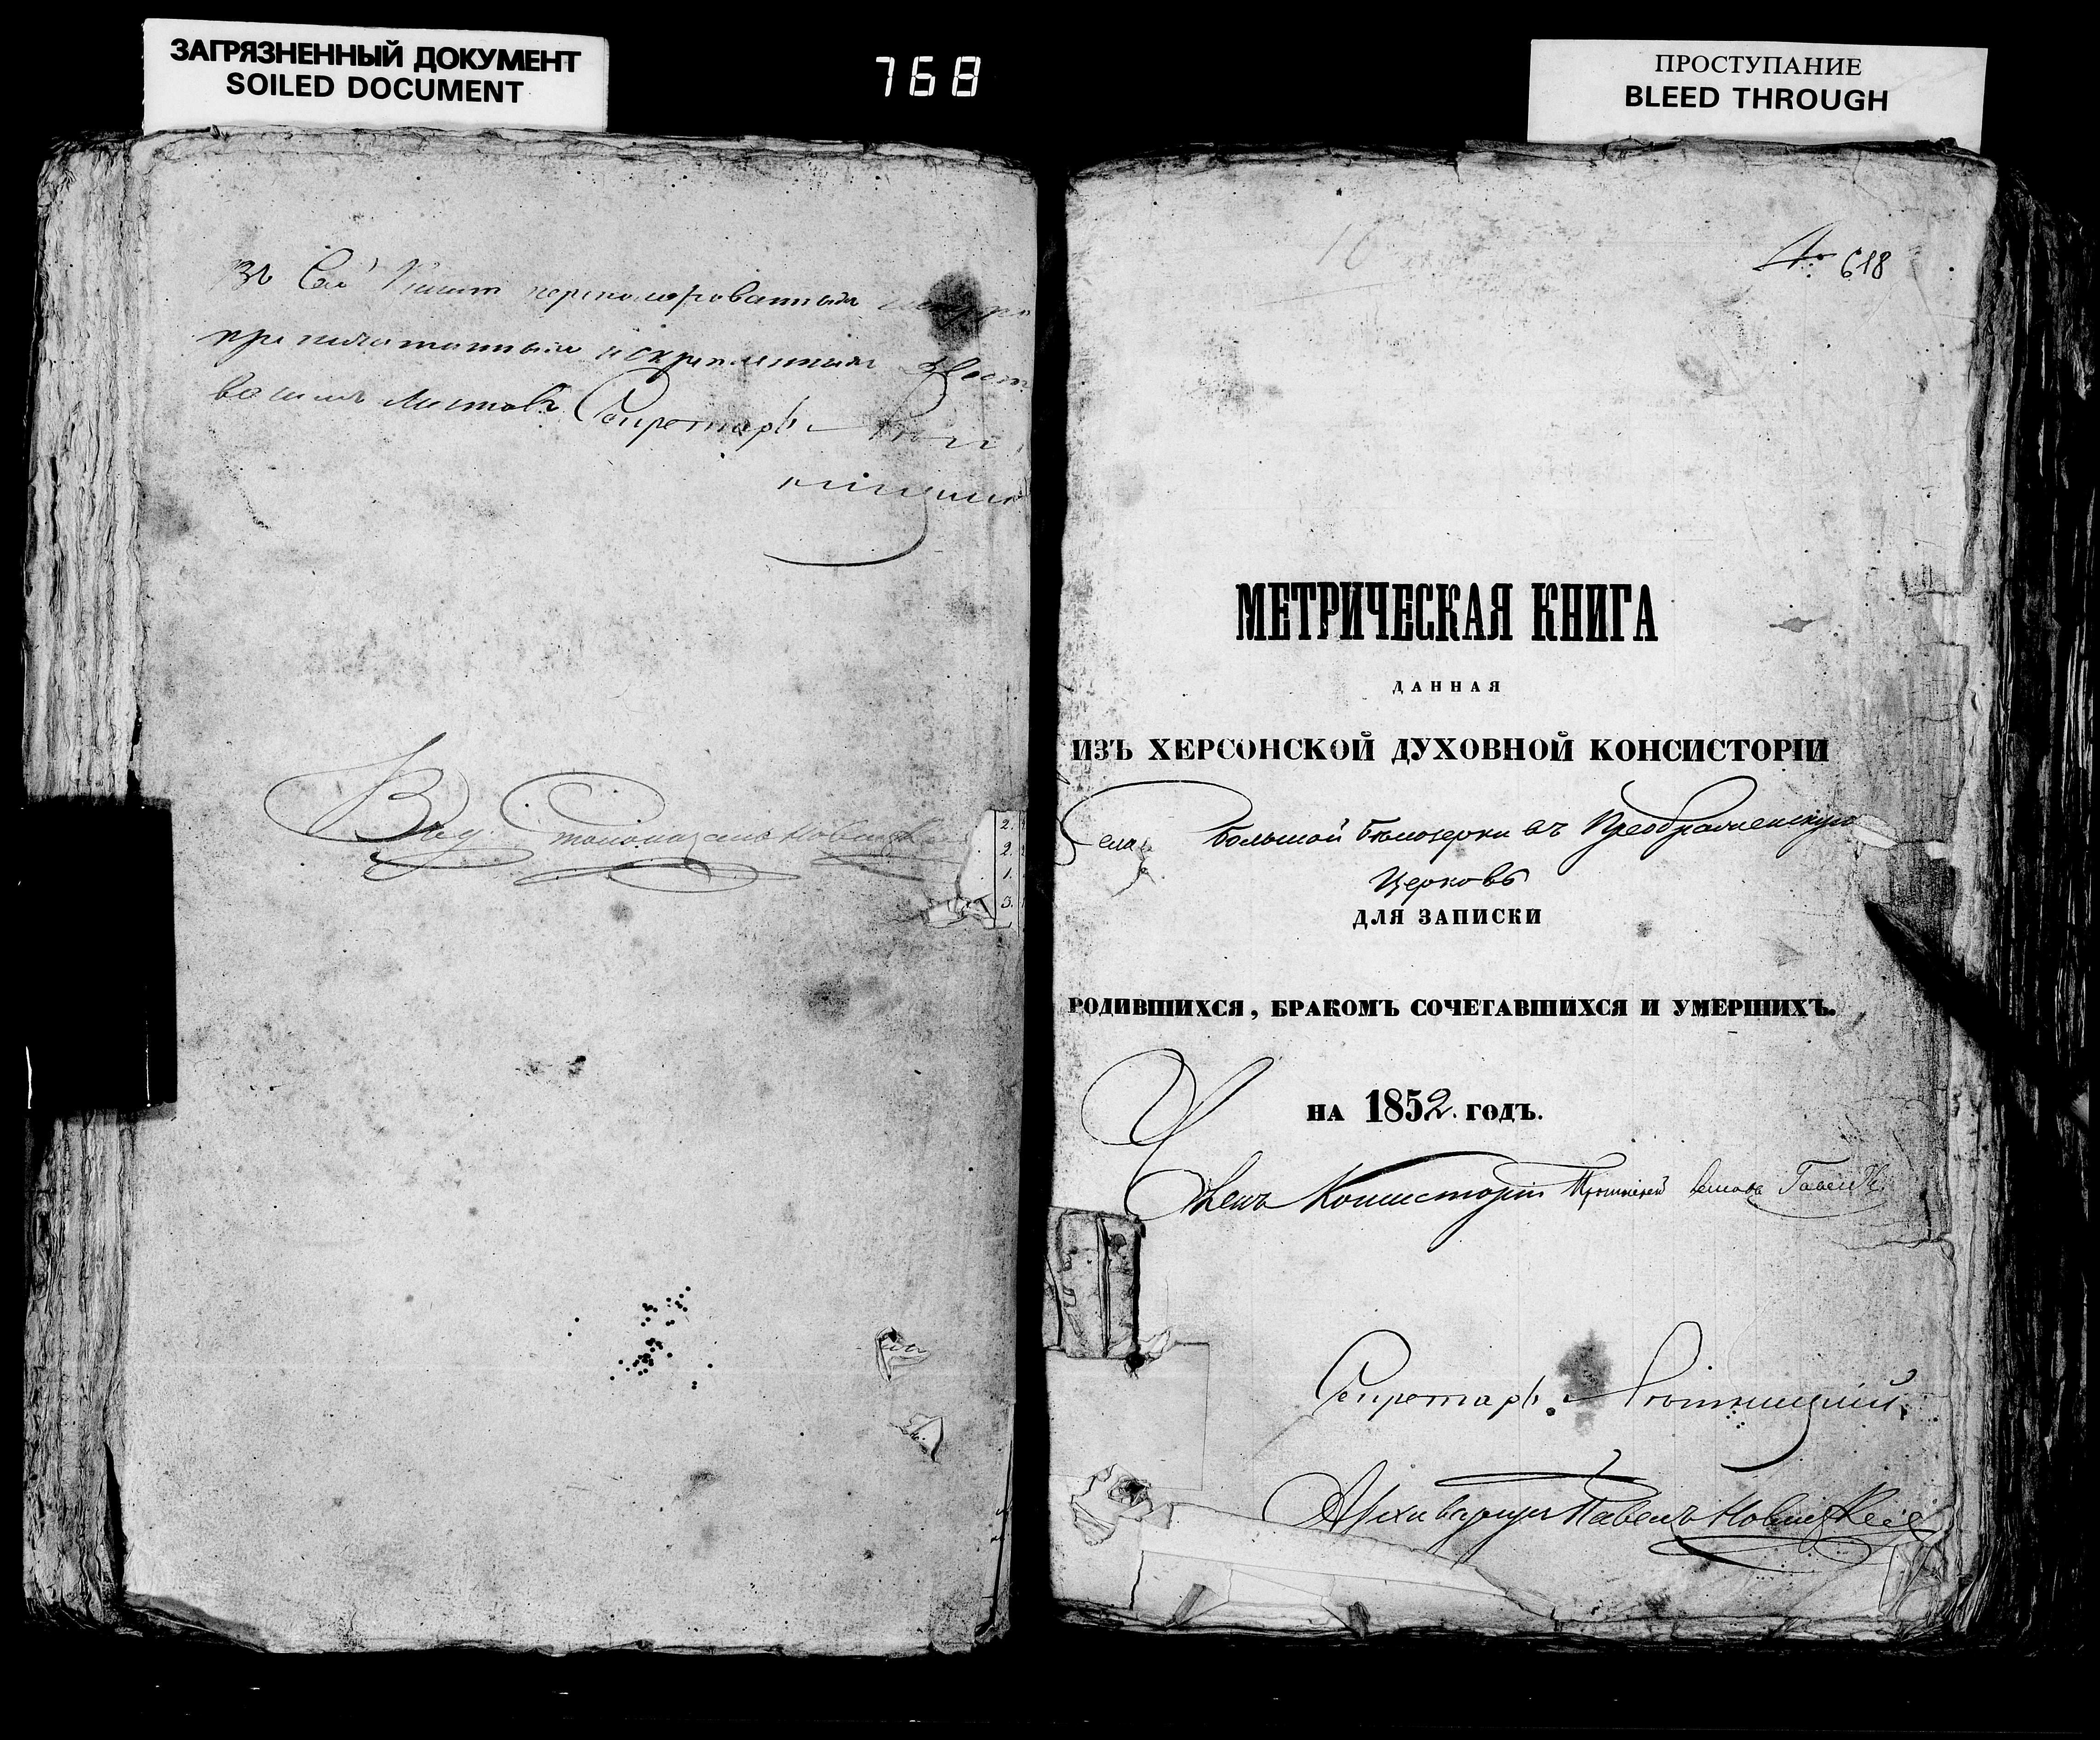 ЗАГРЯЗНЕННЫЙ ДОКУМЕНТ
SOILED DOCUMENT
768
ПРОСТУПАНИЕ
BLEED THROUGH
Въ сей Книгѣ перенумерованныхъ
припечатанныхъ и скрепленныхъ двѣст
листовъ. Секретарь
№ 618
МЕТРИЧЕСКАЯ КНИГА
ДАННАЯ
ИЗЪ ХЕРСОНСКОЙ ДУХОВНОЙ КОНСИСТОРІИ
Села Большой Бѣлозерки въ Преображенскую
Церковь
ДЛЯ ЗАПИСКИ
РОДИВШИХСЯ, БРАКОМЪ СОЧЕТАВШИХСЯ И УМЕРШИХЪ.
НА 1852. ГОДЪ.
Членъ Консисторіи Протоіерей
Секретарь
Архиваріусъ Павелъ Новицкій
2.
2.
1.
3.